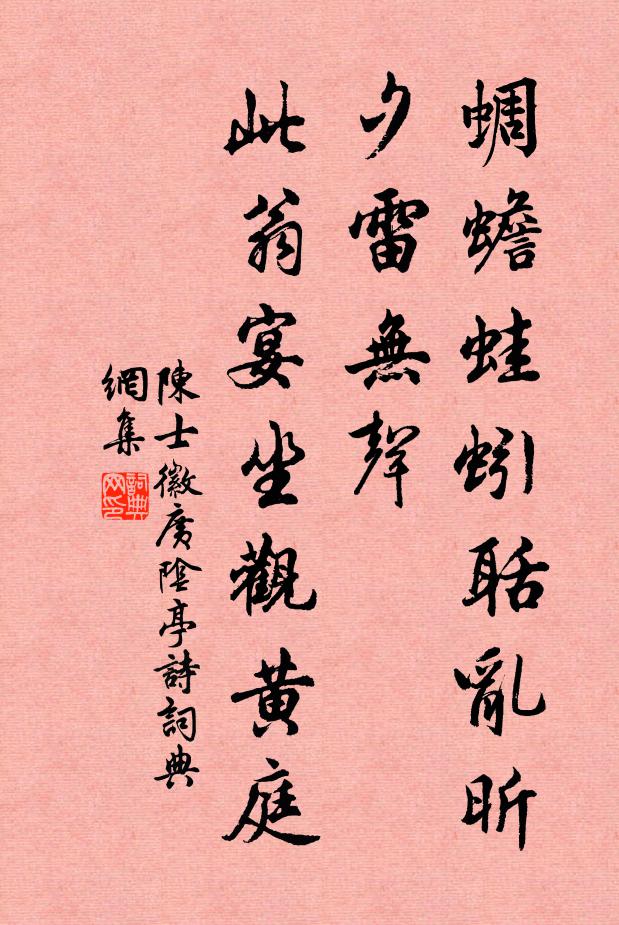 蜩蟾蛙蚓聒亂昕
夕雷無聲
此翁宴坐觀黄庭
陳士徽廣陰亭詩詞典
網集
詞典網印